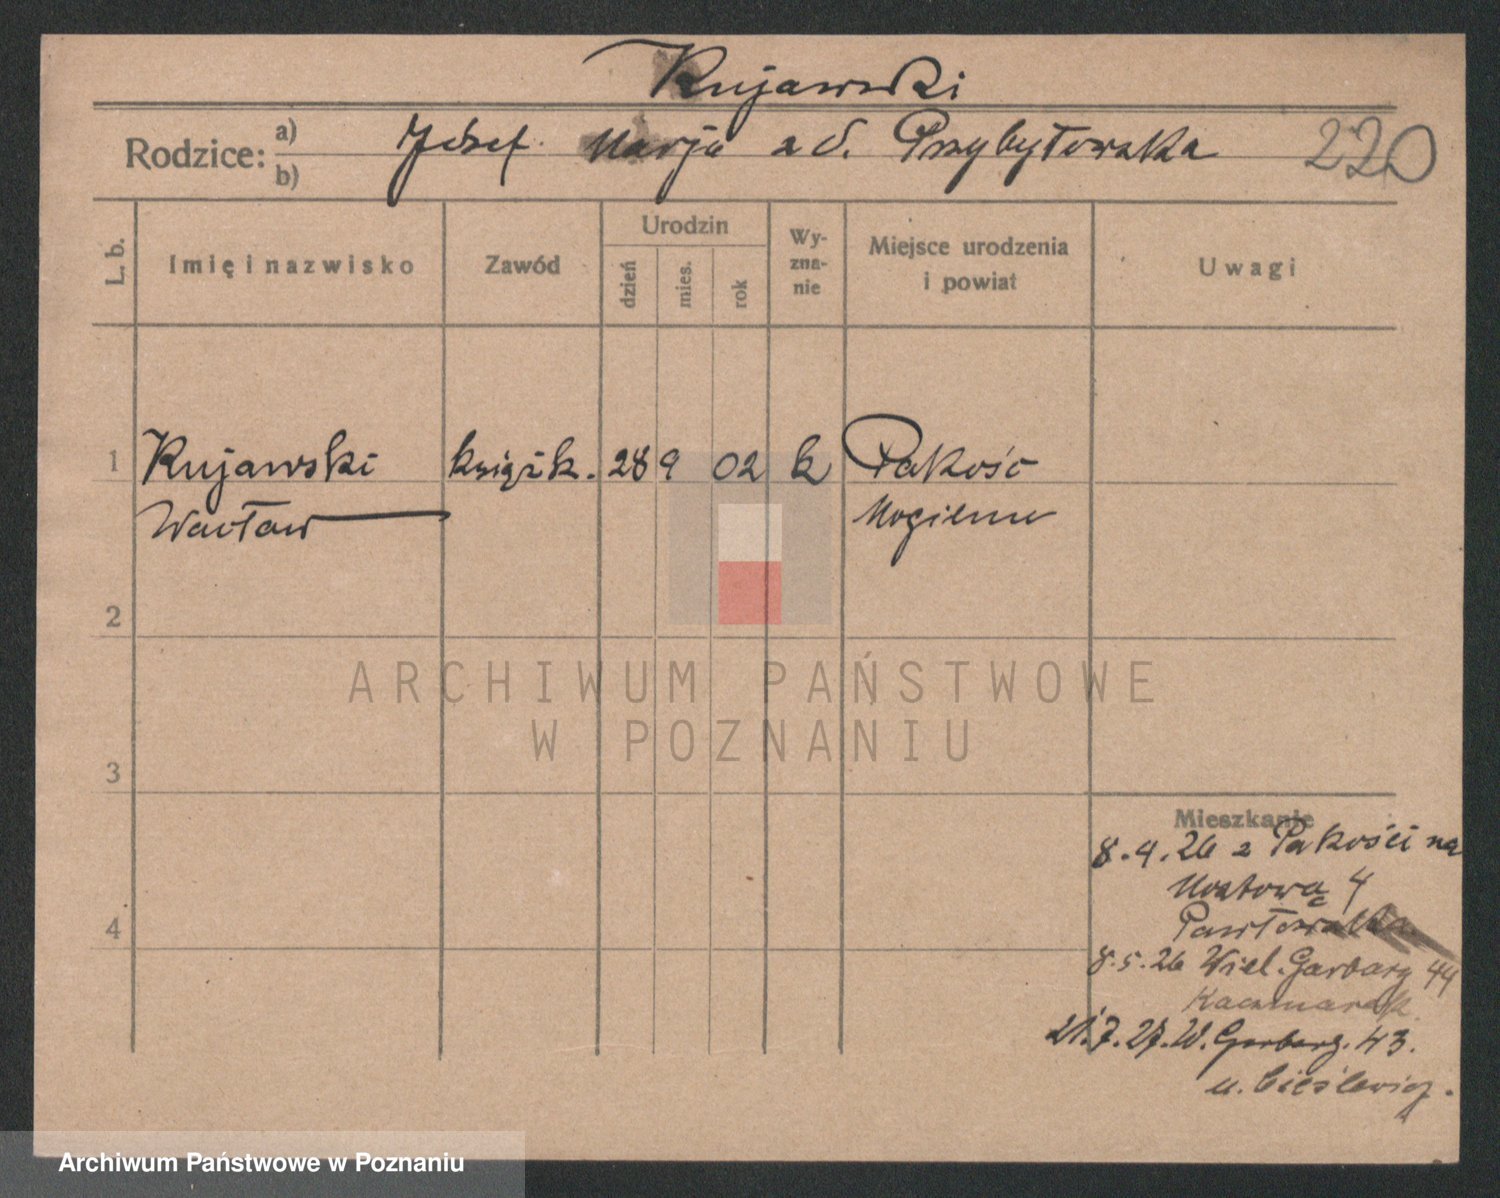 Kujawski
Rodzice: a) b) Józef Marja z d. Przybyłowska 220
L. b. Imię i nazwisko Zawód Urodzin dzień mies. rok Wy-zna-nie Miejsce urodzenia i powiat Uwagi
1 Kujawski książk. 28 9 02 k Pakość
Wacław Mogilno
2
3
4
Mieszkanie
8.4.26 z Pakości na
Mostową 4
Pawłowska
8.5.26 Wiel. Garbary 44
Kaczmarek
21.7.27. W. Garbary. 43.
u. Cieślewicz.
ARCHIWUM PAŃSTWOWE
W POZNANIU
Archiwum Państwowe w Poznaniu